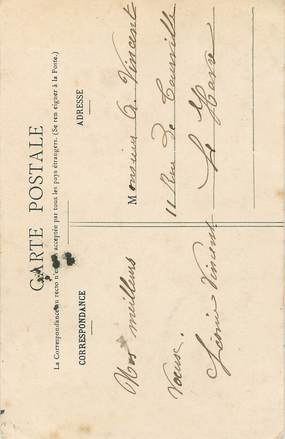 CARTE POSTALE
La Correspondance au recto n'est acceptée par tous les pays étrangers. (Se renseigner à la Poste.)
CORRESPONDANCE
ADRESSE
Mes meilleurs
vœux.
Léonie Vincent
Monsieur A. Vincent
11 Rue de
Le Havre